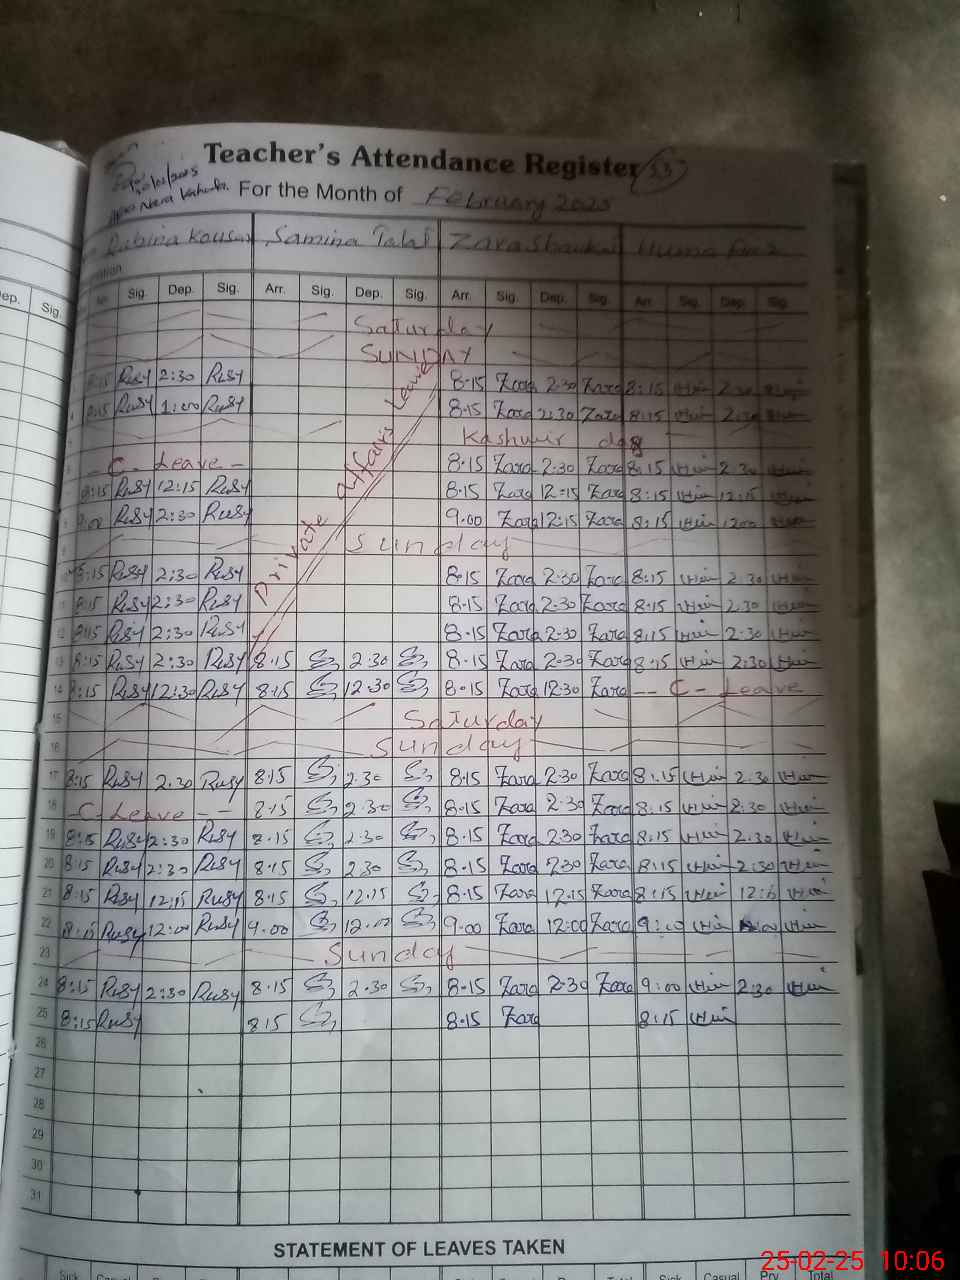 Teacher's Attendance Register 53
For the Month of February 2025
Rubina Kousar Samina Talat Zara Shaukat Huma
Sig. Dep. Sig. Arr. Sig. Dep. Sig. Arr. Sig. Dep. Sig. Arr. Sig. Dep. Sig.
ep. Sig.
Saturday
SUNDAY
8:15 Rusy 2:30 Rusy 8.15 Zara 2.30 Zara 8:15 2.30
8:15 Rusy 1:00 Rusy 8.15 Zara 2.30 Zara 8:15 2:30
Private affairs Leave
Kashmir day
- C - Leave - 8.15 Zara 2.30 Zara 8:15 2.30
8:15 Rusy 12:15 Rusy 8.15 Zara 12.15 Zara 8:15 12:15
9:00 Rusy 2:30 Rusy 9.00 Zara 12:15 Zara 8:15 1200
Sunday
8:15 Rusy 2:30 Rusy 8.15 Zara 2.30 Zara 8:15 2.30
11 8:15 Rusy 2:30 Rusy 8.15 Zara 2.30 Zara 8:15 2.30
12 8:15 Rusy 2:30 Rusy 8.15 Zara 2.30 Zara 8:15 2:30
13 8:15 Rusy 2:30 Rusy 8.15 2.30 8.15 Zara 2.30 Zara 8:15 2:30
14 8:15 Rusy 12:30 Rusy 8.15 12.30 8.15 Zara 12.30 Zara -- C - Leave
15 Saturday
16 Sunday
17 8:15 Rusy 2:30 Rusy 8.15 2.30 8.15 Zara 2.30 Zara 8:15 2.30
18 - C - Leave - - 8.15 2.30 8.15 Zara 2.30 Zara 8:15 2:30
19 8:15 Rusy 2:30 Rusy 8.15 2.30 8.15 Zara 2.30 Zara 8:15 2.30
20 8:15 Rusy 2:30 Rusy 8.15 2.30 8.15 Zara 2.30 Zara 8:15 2:30
21 8:15 Rusy 12:15 Rusy 8.15 12.15 8.15 Zara 12.15 Zara 8:15
22 8:15 Rusy 12:00 Rusy 9.00 12.00 9.00 Zara 12:00 Zara
23 Sunday
24 8:15 Rusy 2:30 Rusy 8.15 2.30 8.15 Zara 2.30 Zara 9:00 2:30
25 8:15 Rusy 8.15 8.15 Zara 8:15
26
27
28
29
30
31
STATEMENT OF LEAVES TAKEN
Sick Casual Total Sick Casual Prv. Total
25-02-25 10:06